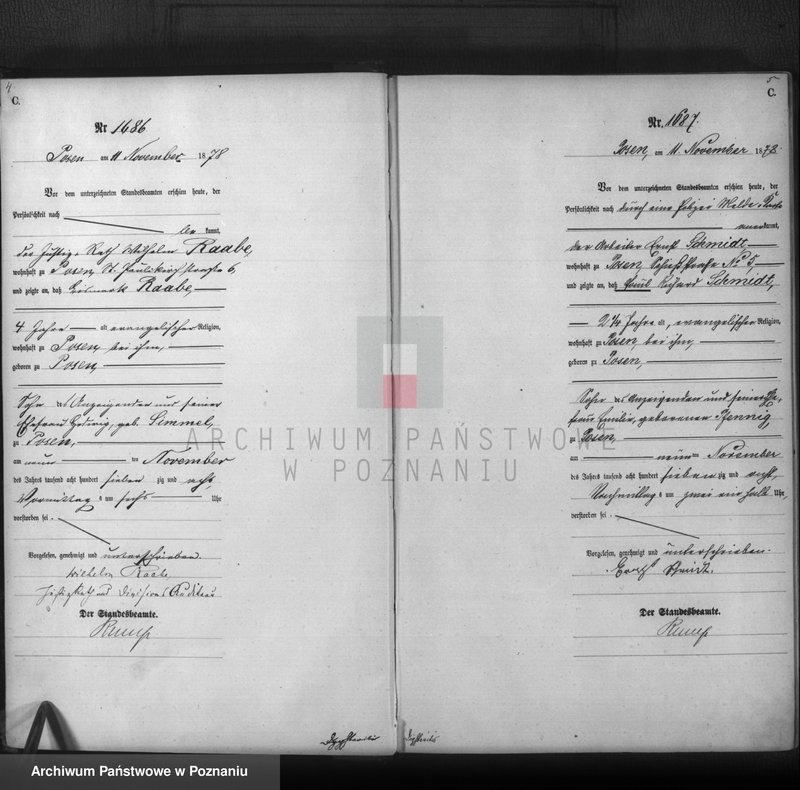 4
C.
Nr. 1686
Posen am 11 November 1878
Vor dem unterzeichneten Standesbeamten erschien heute, der
Persönlichkeit nach
bekannt,
der Justiz-Rath Wilhelm Raabe,
wohnhaft zu Posen St. Paulikirchstraße 6,
und zeigte an, daß Raabe,
4 Jahre alt evangelischer Religion,
wohnhaft zu Posen bei ihm,
geboren zu Posen
Sohn des Anzeigenden und seiner
Ehefrau Hedwig, geb. Simmel,
zu Posen,
am neun ten November
des Jahres tausend acht hundert sieben zig und acht,
Vormittags um sechs Uhr
verstorben sei.
Vorgelesen, genehmigt und unterschrieben.
Wilhelm Raabe
Justizrath und Divisions Auditeur
Der Standesbeamte.
5
C.
Nr. 1687.
Posen, am 11. November 1878.
Vor dem unterzeichneten Standesbeamten erschien heute, der
Persönlichkeit nach durch eine Polizei Melde Karte
anerkannt,
der Arbeiter Ernst Schmidt,
wohnhaft zu Posen, Schießstraße No 5,
und zeigte an, daß Paul Richard Schmidt,
2 1/4 Jahre alt, evangelischer Religion,
wohnhaft zu Posen, bei ihm,
geboren zu Posen,
Sohn des Anzeigenden und seiner Ehe-
frau Emilie, geborenen Pfennig,
zu Posen,
am neun ten November
des Jahres tausend acht hundert sieben zig und acht,
Nachmittags um zwei ein halb Uhr,
verstorben sei.
Vorgelesen, genehmigt und unterschrieben.
Ernst Schmidt.
Der Standesbeamte.
ARCHIWUM PAŃSTWOWE
W POZNANIU
Archiwum Państwowe w Poznaniu